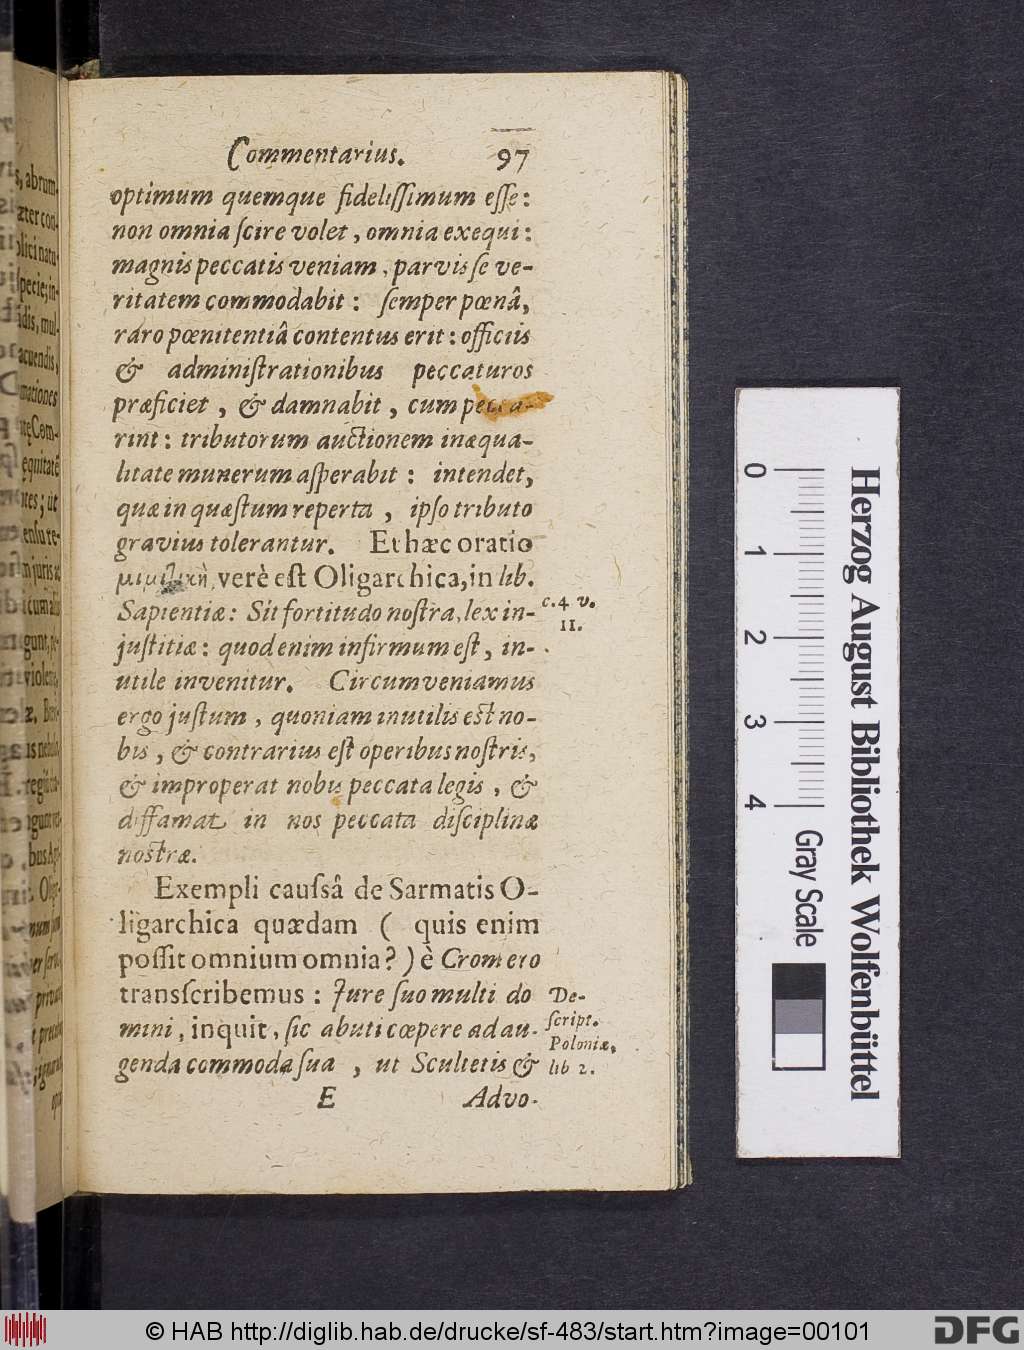 Commentarius. 97
optimum quemque fidelissimum esse:
non omnia scire volet, omnia exequi:
magnis peccatis veniam, parvis se ve-
ritatem commodabit: semper pœnâ,
raro pœnitentiâ contentus erit: officiis
& administrationibus peccaturos
præficiet, & damnabit, cum pecca-
rint: tributorum auctionem inæqua-
litate munerum asperabit: intendet,
quæ in quæstum reperta, ipso tributo
gravius tolerantur. Et hæc oratio
verè est Oligarchica, in lib.
Sapientiæ: Sit fortitudo nostra, lex in-
justitiæ: quod enim infirmum est, in-
utile invenitur. Circumveniamus
ergo justum, quoniam inutilis est no-
bis, & contrarius est operibus nostris,
& improperat nobis peccata legis, &
diffamat in nos peccata disciplinæ
nostræ.
c. 4 v.
11.
Exempli caussâ de Sarmatis O-
ligarchica quædam ( quis enim
possit omnium omnia? ) è Cromero
transscribemus: Jure suo multi do
mini, inquit, sic abuti cœpere ad au-
genda commoda sua, ut Scultetis &
De-
script.
Poloniæ,
lib 2.
E Advo-
s, abrum-
æter con-
specie; in-
idis, mul-
acuendis,
mationes
Com-
æquitatē
ites; ut
0 1 2 3 4
Gray Scale
Herzog August Bibliothek Wolfenbüttel
© HAB http://diglib.hab.de/drucke/sf-483/start.htm?image=00101
DFG